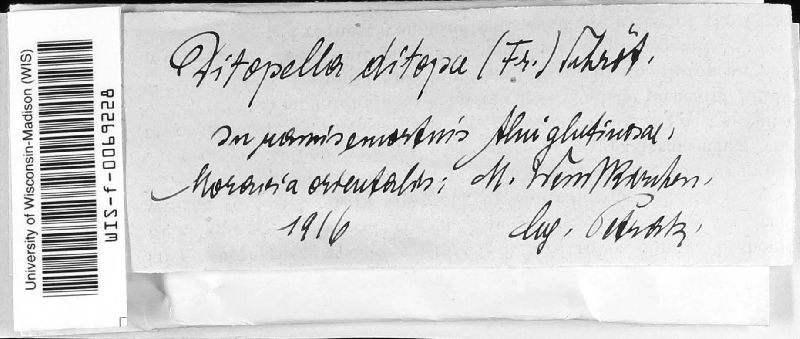 University of Wisconsin-Madison (WIS)
WIS-f-0069228
Ditopella ditopa (Fr.) Schröt.
In ramis emortuis Alni glutinosae,
Moravia orientalis: M. Weisskirchen,
1916 leg. Petrak,